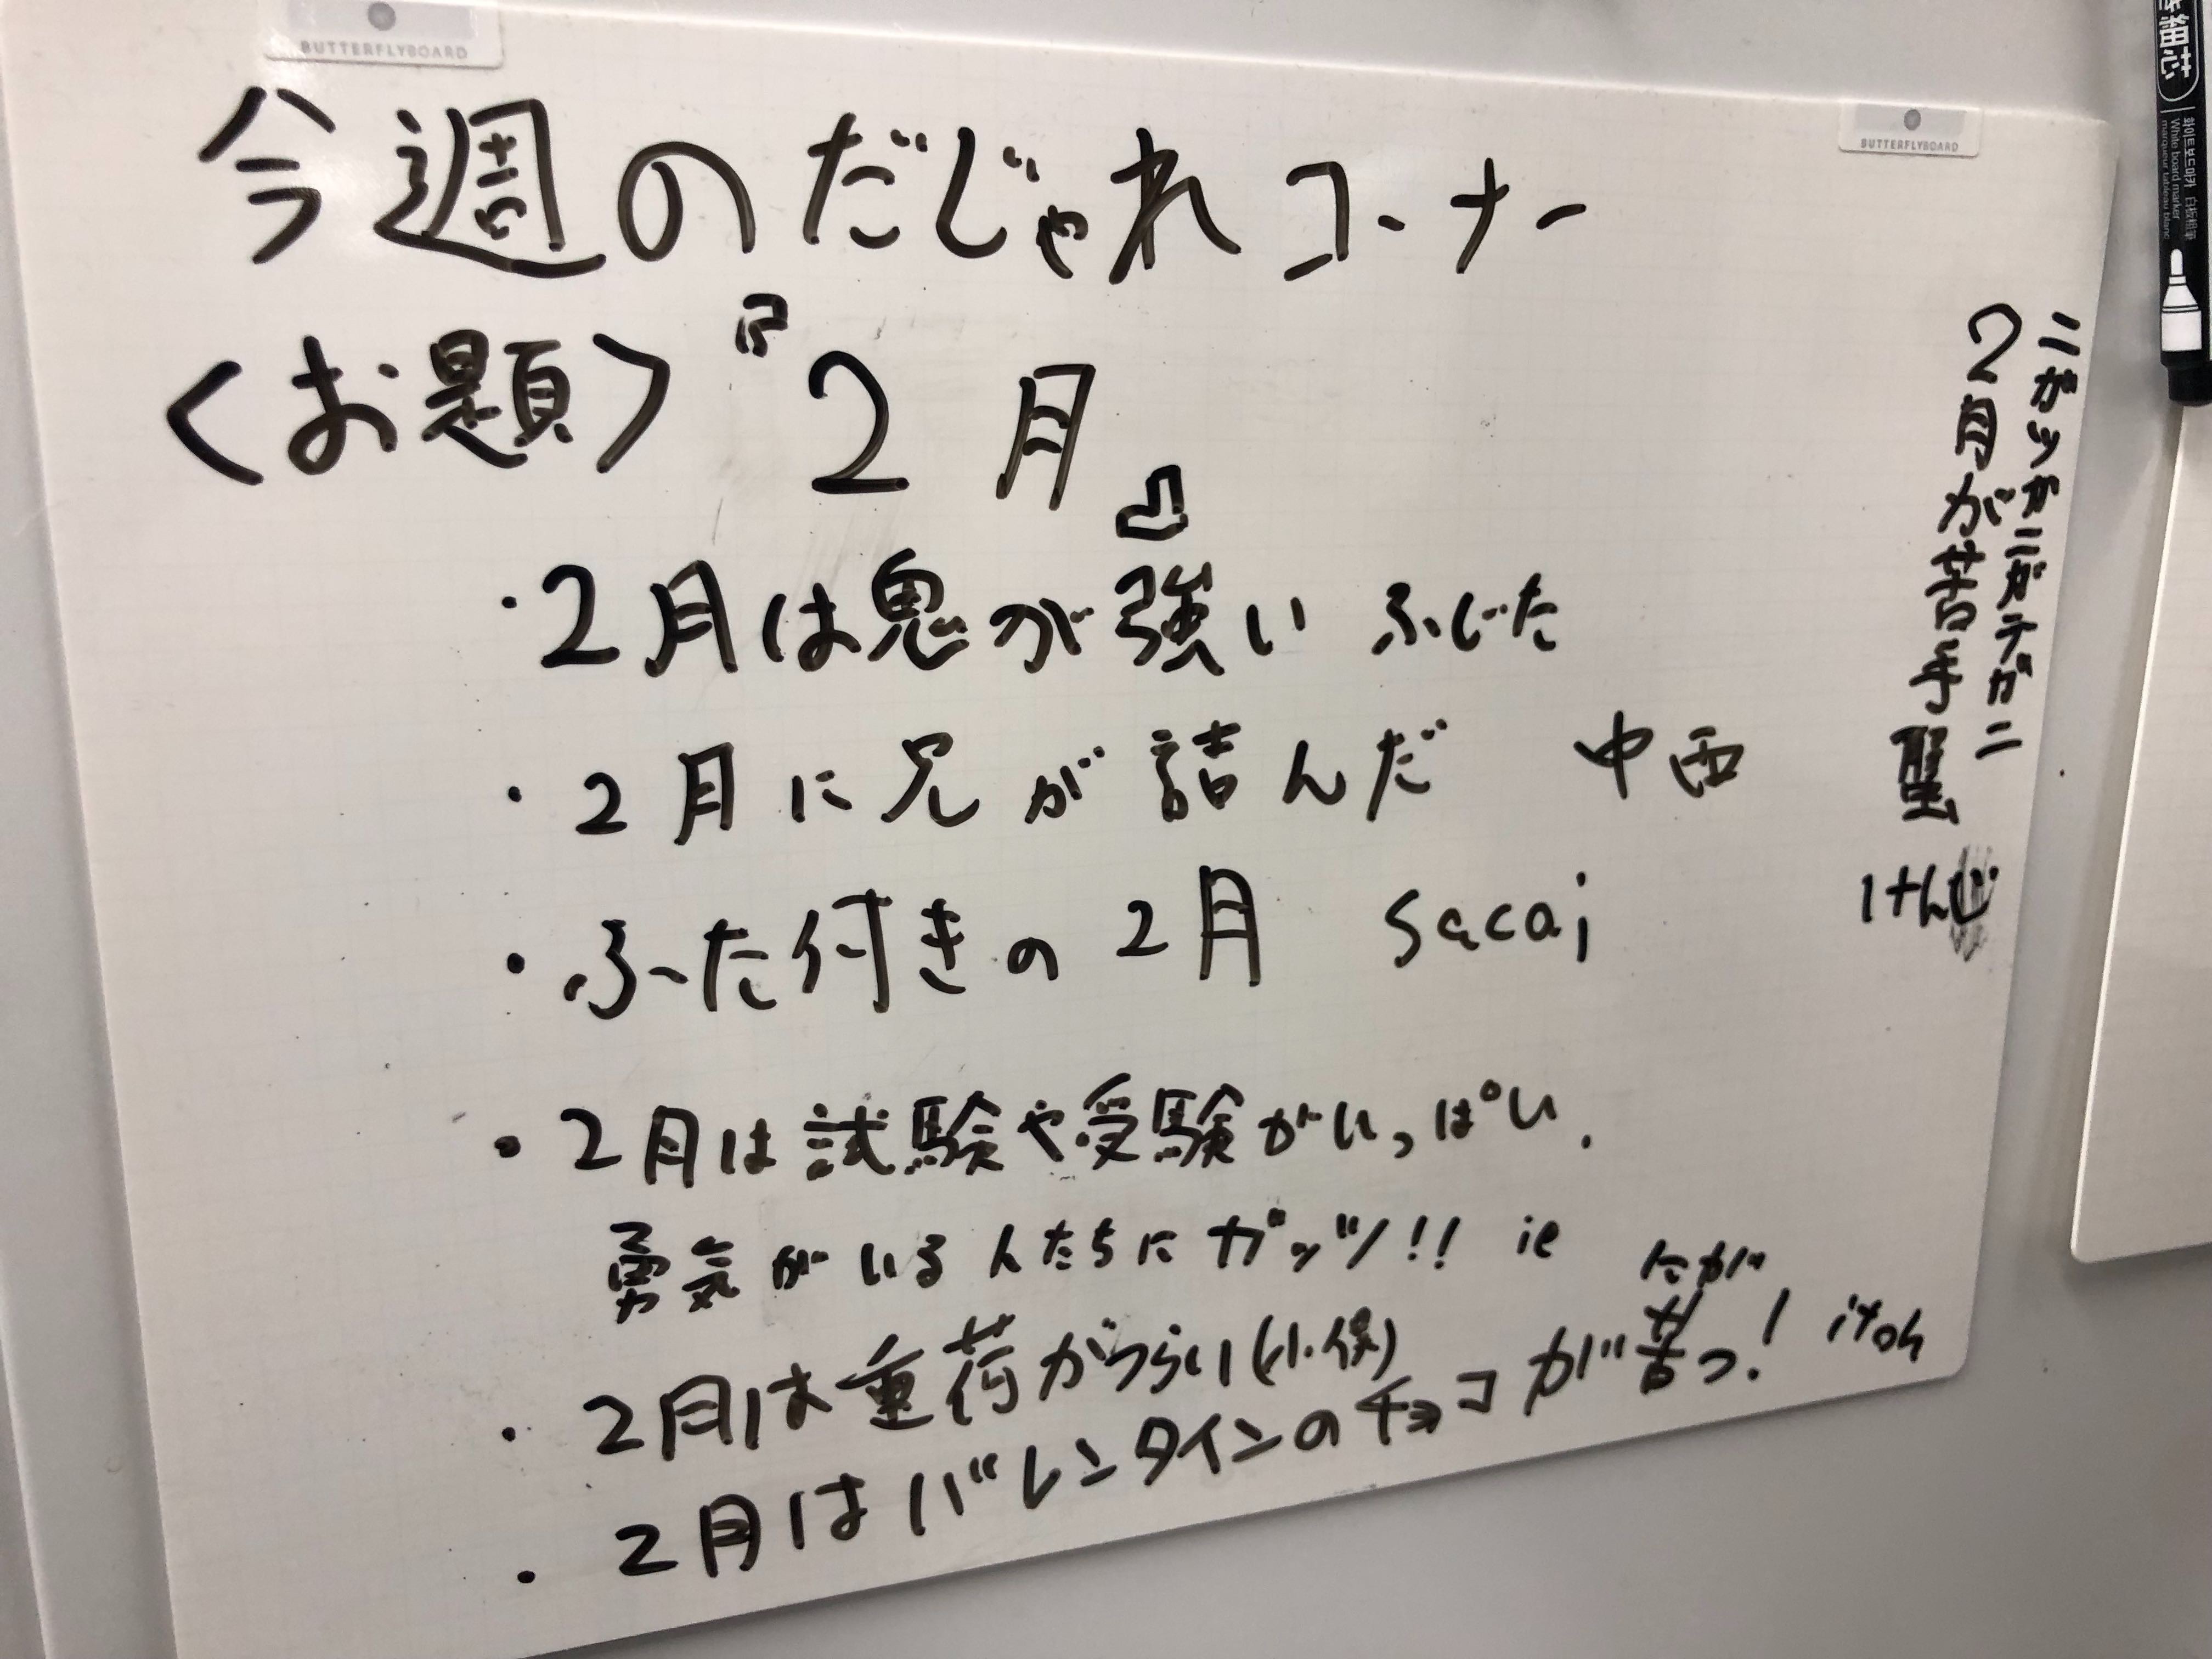 BUTTERFLYBOARD
BUTTERFLYBOARD
今週のだじゃれコーナー
<お題>『2月』
・2月は鬼が強い ふじた
・2月に兄が詰んだ 中西
・ふた付きの2月 sacai
・2月は試験や受験がいっぱい.
勇気がいる人たちにガッツ!! ie
・2月は重荷がつらい(小保)
にが
・2月はバレンタインのチョコが苦っ! itoh
ニガツガニガテガニ
2月が苦手蟹 けんじ
細芯
화이트보드마카 白板粗筆
White board marker
marqueur tableau blanc